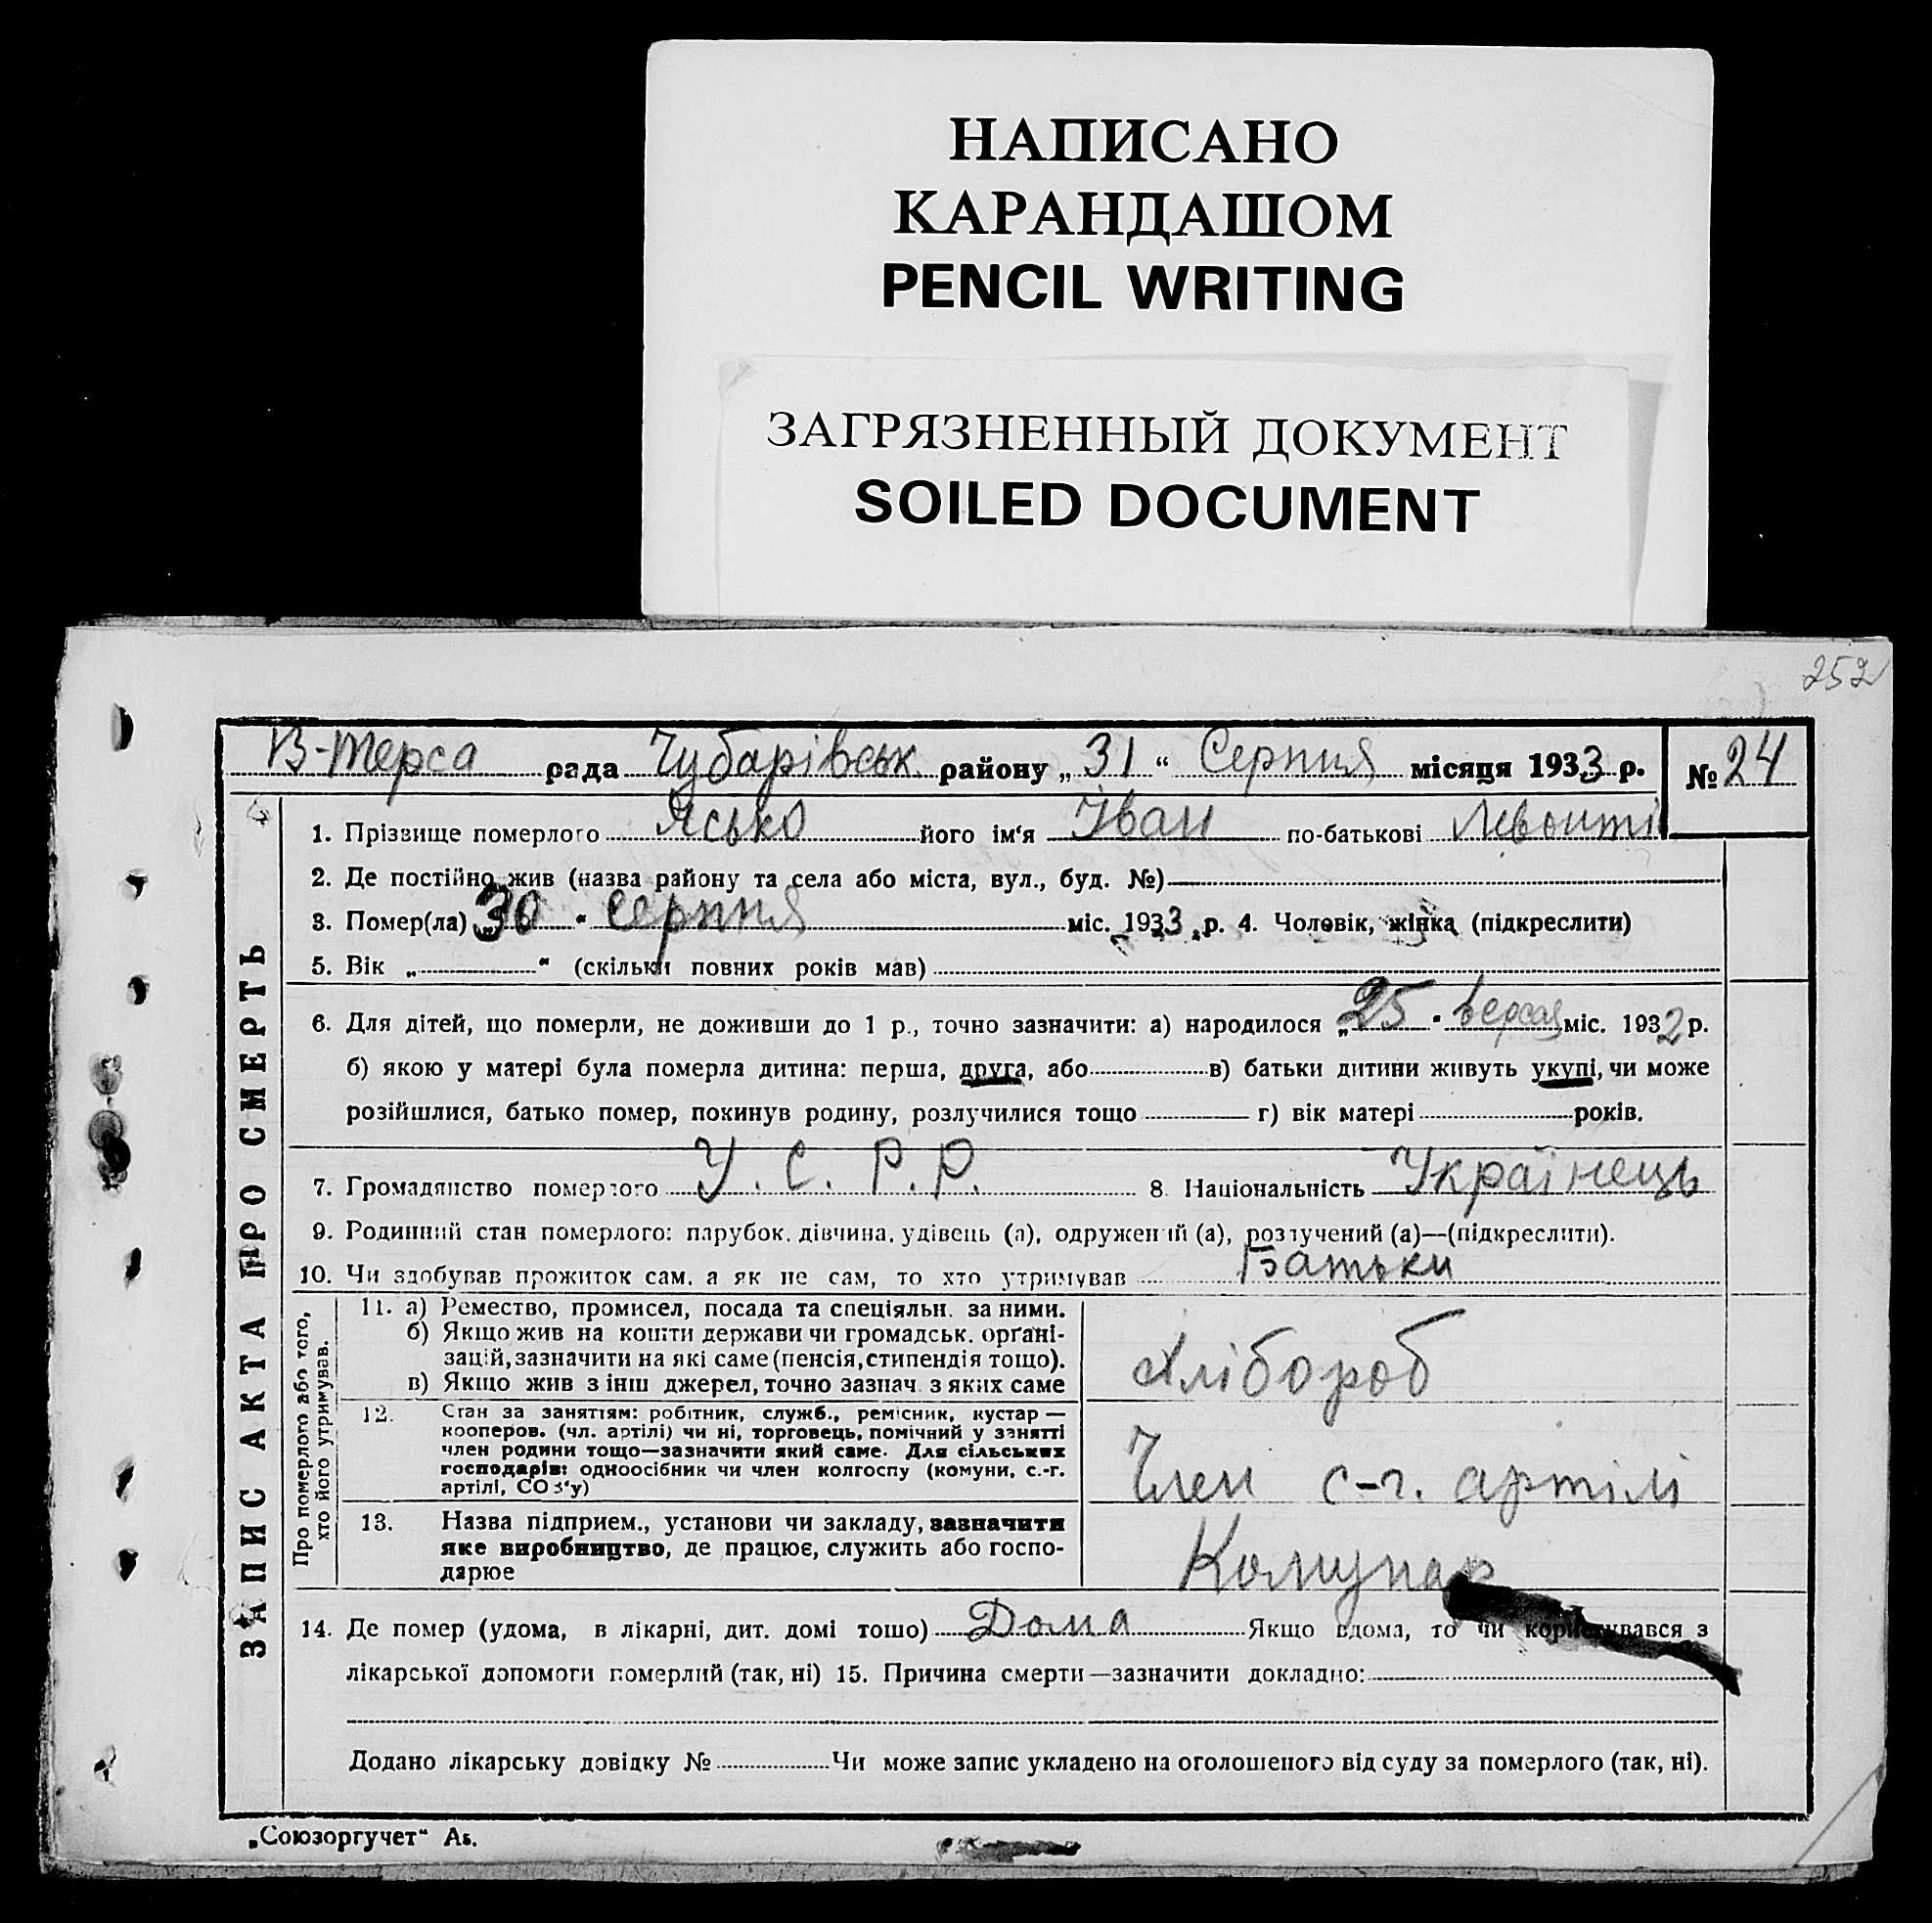 НАПИСАНО
КАРАНДАШОМ
PENCIL WRITING
ЗАГРЯЗНЕННЫЙ ДОКУМЕНТ
SOILED DOCUMENT
252
В-Терса рада Чубарівськ. району „31“ Серпня місяця 1933 р. № 24
ЗАПИС АКТА ПРО СМЕРТЬ
1. Прізвище померлого Ясько його ім‘я Іван по-батькові Левонті
2. Де постійно жив (назва району та села або міста, вул., буд. №)
3. Помер(ла) „30“ Серпня міс. 1933 р. 4. Чоловік, жінка (підкреслити)
5. Вік „ “ (скільки повних років мав)
6. Для дітей, що померли, не доживши до 1 р., точно зазначити: а) народилося „25“ міс. 1932 р.
б) якою у матері була померла дитина: перша, друга, або в) батьки дитини живуть укупі, чи може
розійшлися, батько помер, покинув родину, розлучилися тощо г) вік матері років.
7. Громадянство померлого У. С. Р. Р. 8. Національність Українець
9. Родинний стан померлого: парубок, дівчина, удівець (а), одружений (а), розлучений (а)—(підкреслити).
10. Чи здобував прожиток сам, а як не сам, то хто утримував Батьки
Про померлого або того,
хто його утримував.
11. а) Ремество, промисел, посада та спеціяльн. за ними.
б) Якщо жив на кошти держави чи громадськ. орґані-
зацій, зазначити на які саме (пенсія, стипендія тощо).
в) Якщо жив з інш джерел, точно зазнач. з яких саме
Хлібороб
12. Стан за заняттям: робітник, служб., ремісник, кустар —
кооперов. (чл. артілі) чи ні, торговець, помічний у занятті
член родини тощо—зазначити який саме. Для сільських
господарів: одноосібник чи член колгоспу (комуни, с.-г.
артілі, СОЗ‘у)
Член с-г. артілі
13. Назва підприєм., установи чи закладу, зазначити
яке виробництво, де працює, служить або госпо-
дарює
Комунар
14. Де помер (удома, в лікарні, дит. домі тощо) Дома Якщо вдома, то чи користувався з
лікарської допомоги померлий (так, ні) 15. Причина смерти—зазначити докладно:
Додано лікарську довідку № Чи може запис укладено на оголошеного від суду за померлого (так, ні).
„Союзоргучет“ Аз.